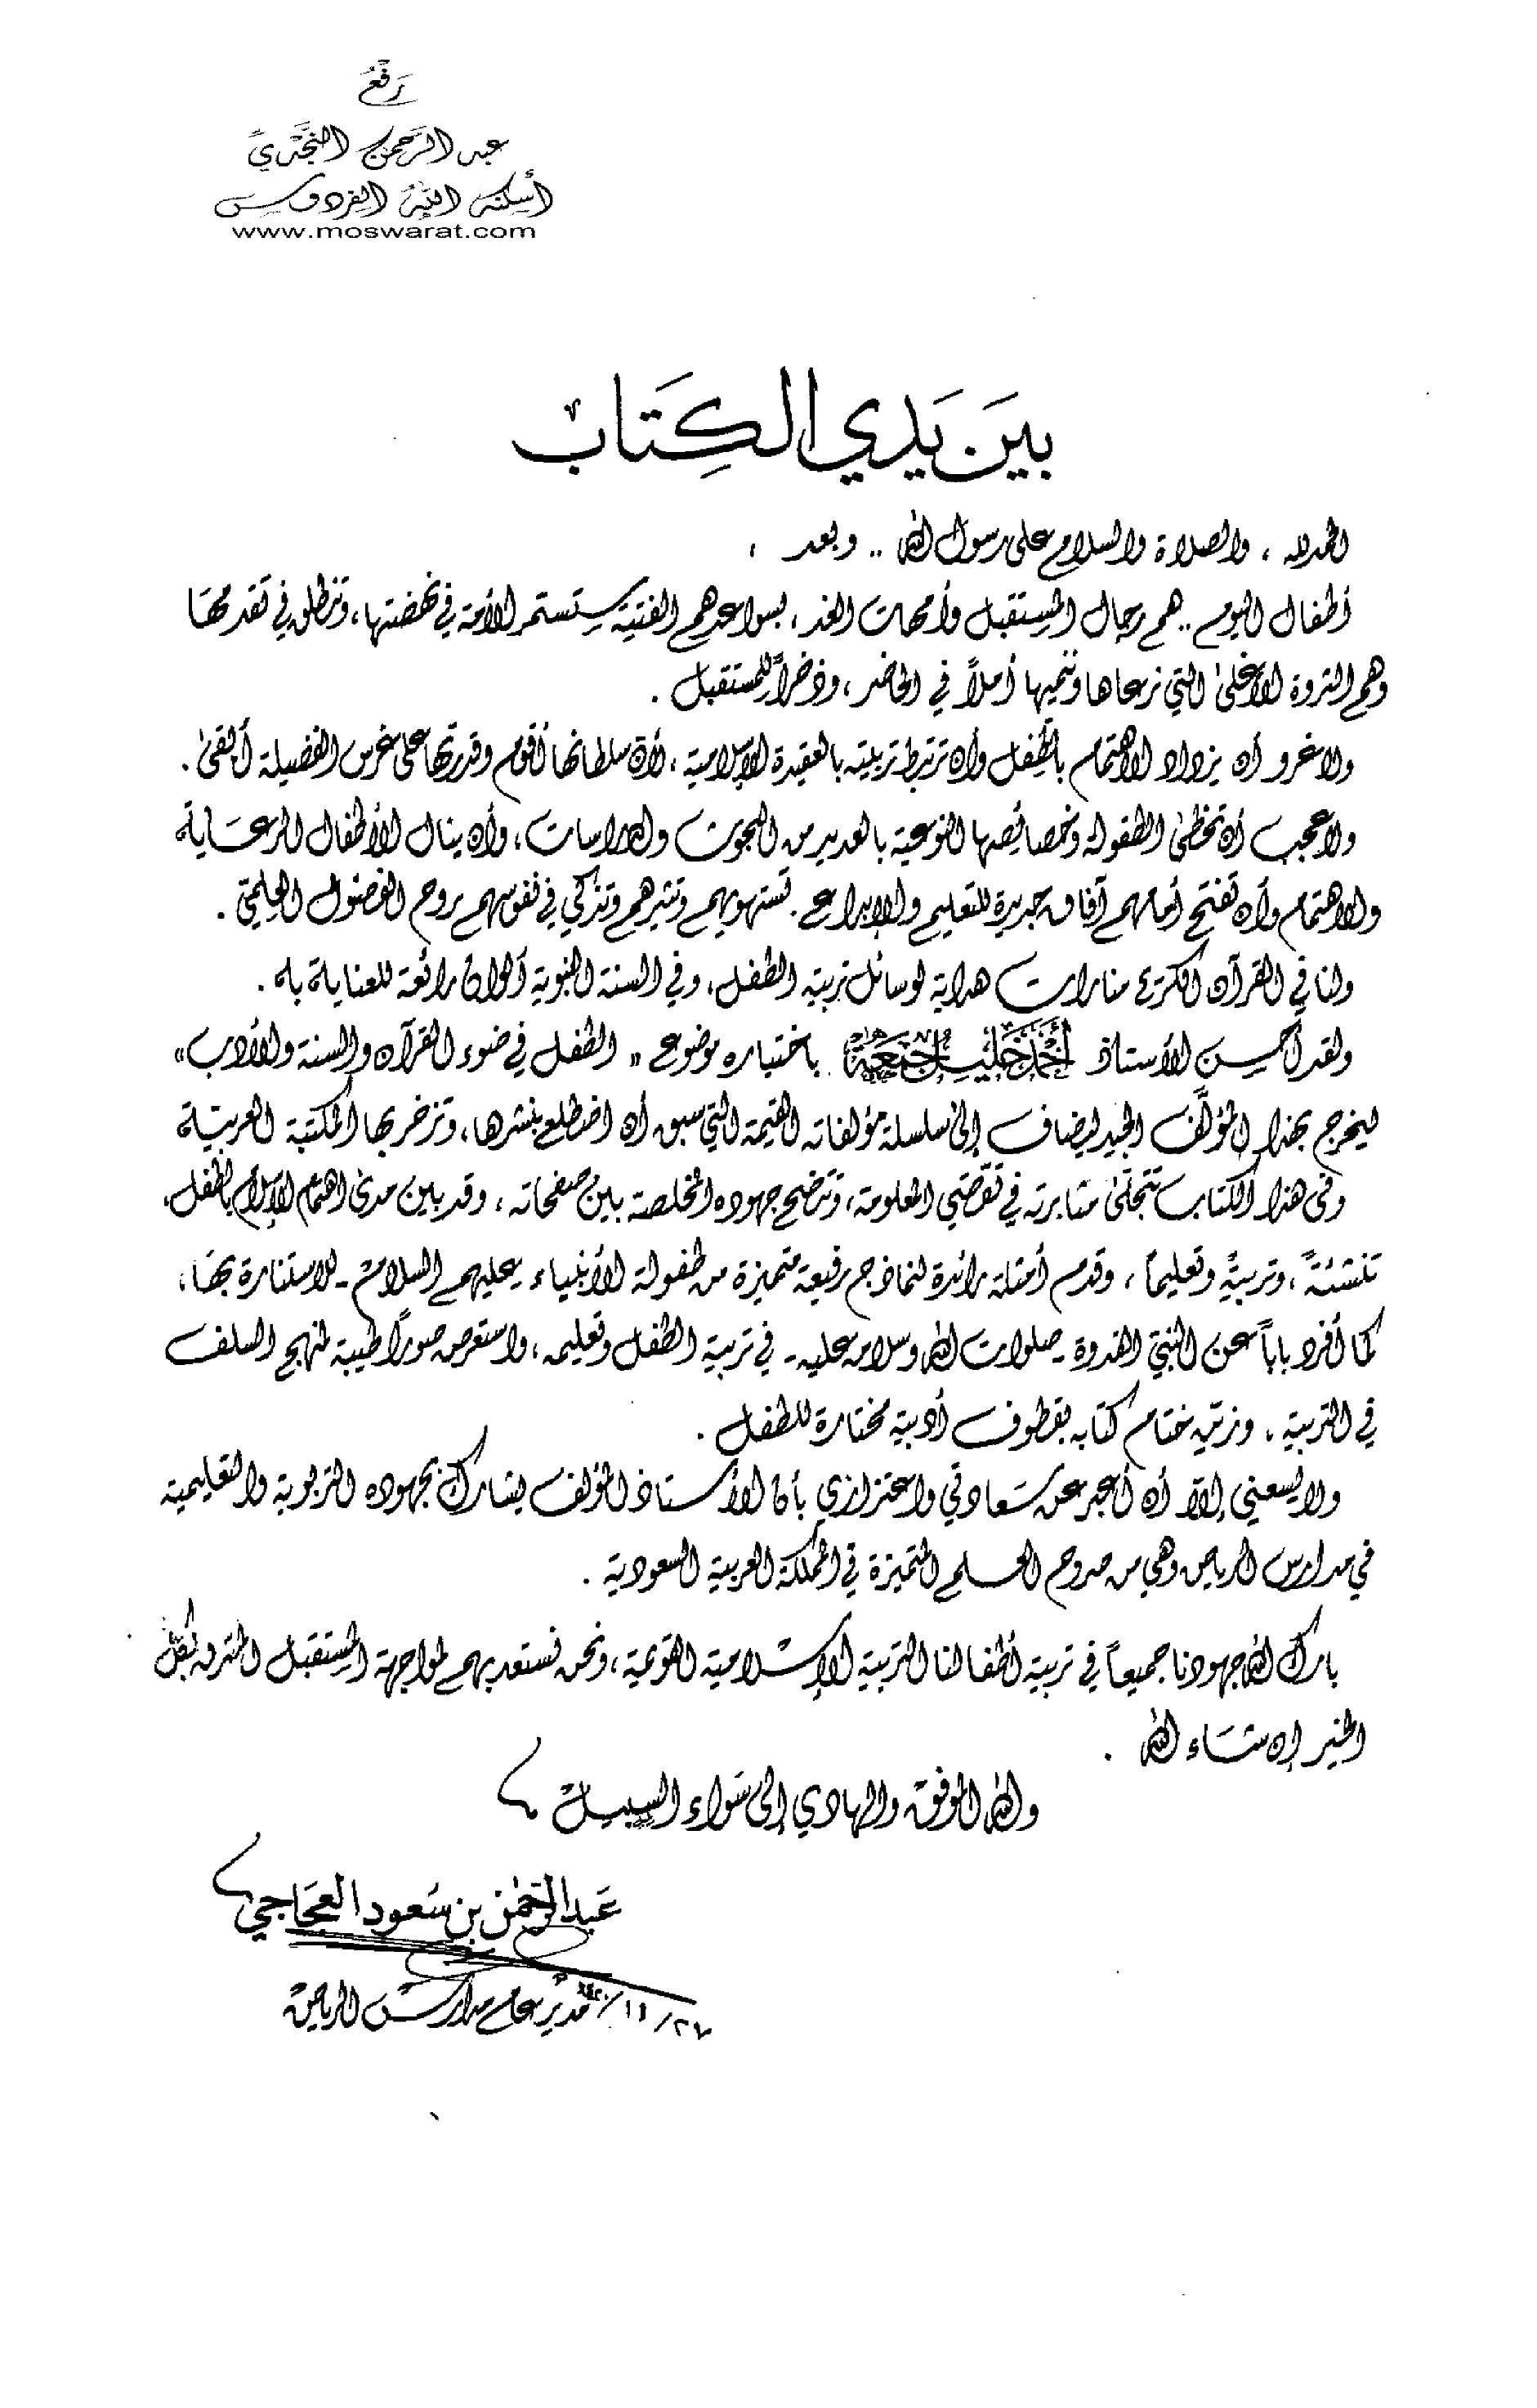 رَفْعُ
عبد الرَّحمن النَّجَّدِيِّ
أُسكنه اللهُ الفِردوس
www.moswarat.com
بَينَ يَدَي الكِتَاب
الحمد لله ، والصلاة والسلام على رسول الله .. وبعد ،
أطفال اليوم .. هم رجال المستقبل وأمهات الغد ، بسواعدهم الفتية ستستمر الأمة في نهضتها ، وتنطلق في تقدمها
وهم الثروة الأغلى التي نرعاها وننميها أملاً في الحاضر ، وذخراً للمستقبل .
ولا غرو أن يزداد الاهتمام بالطفل وأن ترتبط تربيته بالعقيدة الإسلامية ، لأن سلطانها أقوم وقدرتها على غرس الفضيلة أبقى .
ولا عجب أن تحظى الطفولة وخصائصها النوعية بالعديد من البحوث والدراسات ، وأن ينال الأطفال الرعاية
والاهتمام وأن تفتح أمامهم آفاق جديدة للتعليم والإبداع . تستهويهم وتثيرهم وتذكي في نفوسهم روح الفضول العلمي .
ولنا في القرآن الكريم منارات هداية لوسائل تربية الطفل ، وفي السنة النبوية ألوان رائعة للعناية به .
ولقد أحسن الأستاذ أحمد خليل جمعة باختياره موضوع « الطفل في ضوء القرآن والسنة والأدب »
ليخرج بهذا المؤلَّف الجيد ليضاف إلى سلسلة مؤلفاته القيمة التي سبق أن اضطلع بنشرها ، وتزخر بها المكتبة العربية
وفي هذا الكتاب تتجلى مثابرته في تقصّي المعلومة ، وتتضح جهوده المخلصة بين صفحاته ، وقد بين مدى اهتمام الإسلام بالطفل ،
تنشئةً ، وتربيةً وتعليماً ، وقدم أمثلة رائدة لنماذج رفيعة متميزة من طفولة الأنبياء - عليهم السلام - للاستنارة بها ،
كما أفرد باباً عن النبي القدوة - صلوات الله وسلامه عليه - في تربية الطفل وتعليمه ، واستعرض صوراً طيبة لمنهج السلف
في التربية ، وزيّن ختام كتابه بقطوف أدبية مختارة للطفل .
ولا يسعني إلا أن أعبر عن سعادتي واعتزازي بأن الأستاذ المؤلف يشارك بجهوده التربوية والتعليمية
في مدارس الرياض وهي من صروح العلم المتميزة في المملكة العربية السعودية .
بارك الله جهودنا جميعاً في تربية أطفالنا التربية الإسلامية القويمة ، ونحن نستعد بهم لمواجهة المستقبل المشرق بكل
الخير إن شاء الله .
والله الموفق والهادي إلى سَواء السبيل
عَبدالرَّحمٰن بن سَعود العجَاجي
مدير عام مدارس الرياض
٢٧/١١/١٤٢٠